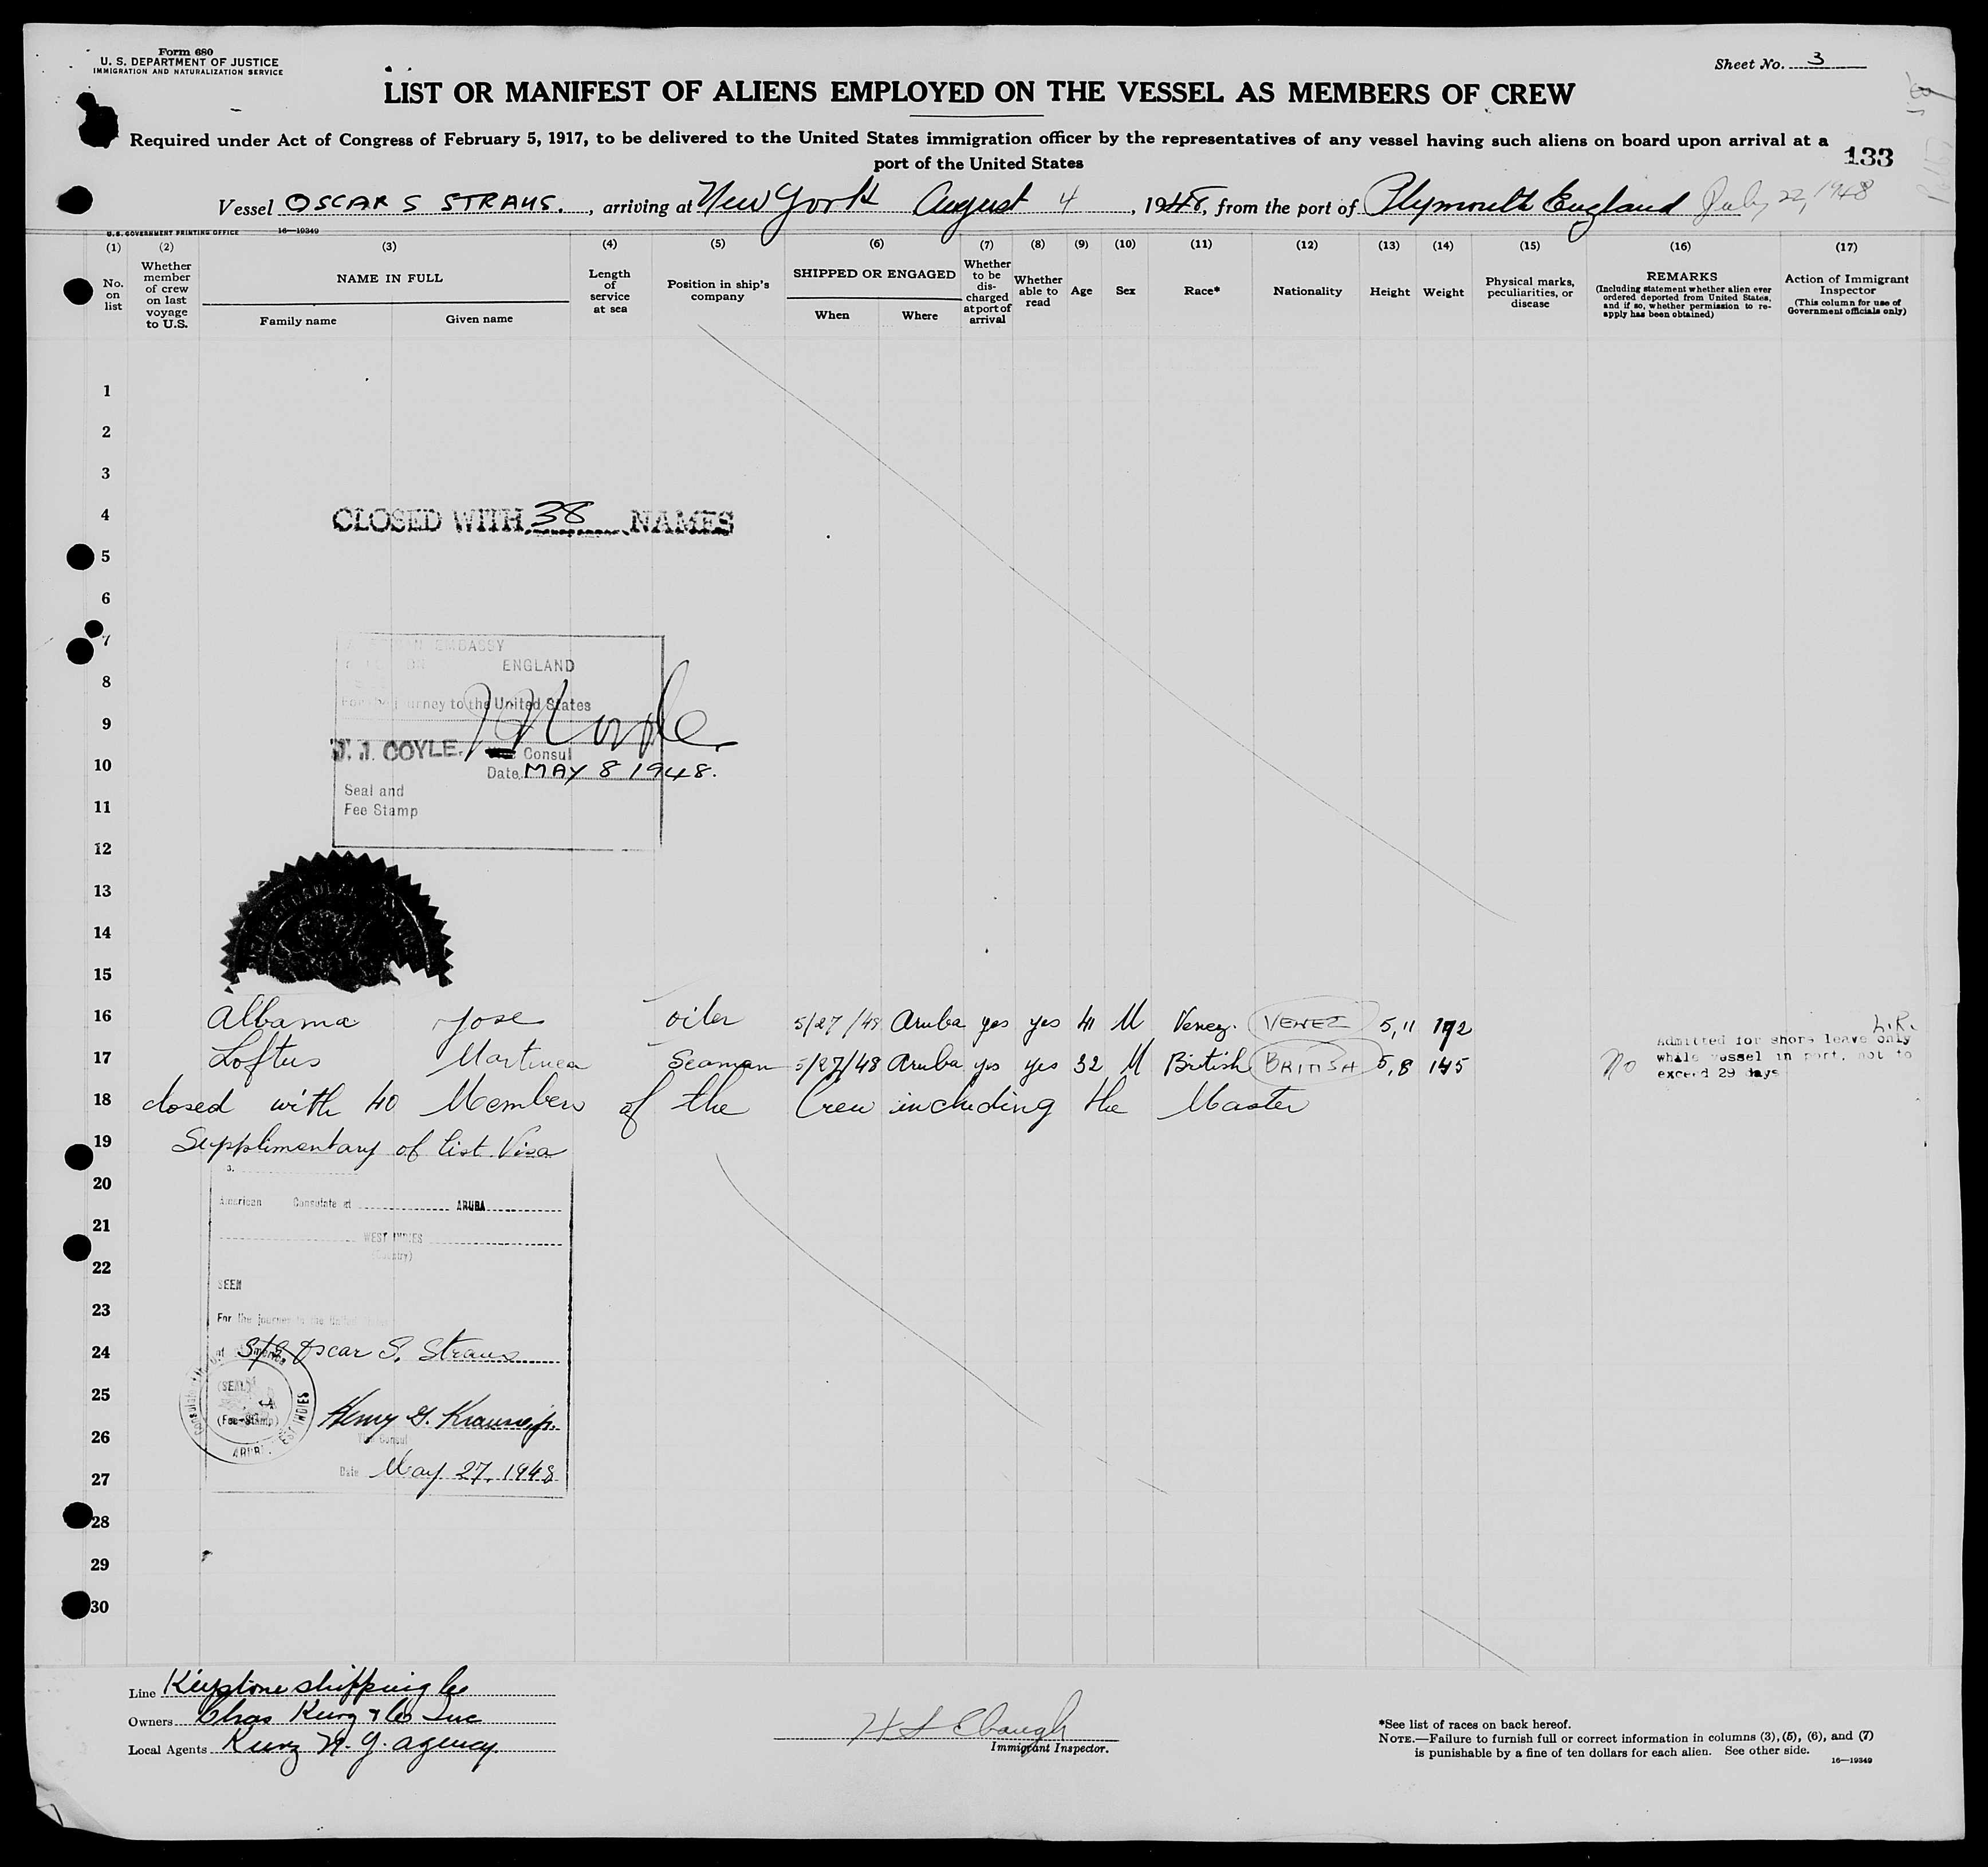 Form 680
U. S. DEPARTMENT OF JUSTICE
IMMIGRATION AND NATURALIZATION SERVICE
Sheet No. 3
LIST OR MANIFEST OF ALIENS EMPLOYED ON THE VESSEL AS MEMBERS OF CREW
Required under Act of Congress of February 5, 1917, to be delivered to the United States immigration officer by the representatives of any vessel having such aliens on board upon arrival at a
port of the United States
133
Vessel OSCAR S STRAUS. , arriving at New York August 4 , 1948, from the port of Plymouth England July 22, 1948
U. S. GOVERNMENT PRINTING OFFICE 16—19349
(1) (2) (3) (4) (5) (6) (7) (8) (9) (10) (11) (12) (13) (14) (15) (16) (17)
No. on list
Whether member of crew on last voyage to U.S.
NAME IN FULL
Family name Given name
Length of service at sea
Position in ship's company
SHIPPED OR ENGAGED
When Where
Whether to be discharged at port of arrival
Whether able to read
Age
Sex
Race*
Nationality
Height
Weight
Physical marks, peculiarities, or disease
REMARKS
(Including statement whether alien ever ordered deported from United States, and if so, whether permission to re-apply has been obtained)
Action of Immigrant Inspector
(This column for use of Government officials only)
1
2
3
4 CLOSED WITH 38 NAMES
5
6
7 EMBASSY
ENGLAND
8
For the journey to the United States
9
J. J. COYLE. Consul
10 Date MAY 8 1948.
Seal and
11 Fee Stamp
12
13
14
15
16 Albama Jose oiler 5/27/48 Aruba yes yes 41 M Venez. VENEZ 5,11 192
L.R.
17 Loftus Martinea Seaman 5/27/48 Aruba yes yes 32 M British BRITISH 5,8 145 No
Admitted for shore leave only
while vessel in port, not to
exceed 29 days
18 closed with 40 Members of the Crew including the Master
19 Supplimentary of list Visa
20
American Consulate at ARUBA
21
WEST INDIES
(Country)
22
SEEN
23
For the journey to the United States
24 of America S/S Oscar S. Straus
25 (SEAL)
(Fee-Stamp) Henry G. Krausse, jr.
26 Vice Consul
ARUBA, WEST INDIES
27 Date May 27, 1948
28
29
30
Line Keystone shipping Co
Owners Chas Kurz & Co Inc
Local Agents Kurz N.Y. agency
H S Ebaugh
Immigrant Inspector.
*See list of races on back hereof.
NOTE.—Failure to furnish full or correct information in columns (3), (5), (6), and (7)
is punishable by a fine of ten dollars for each alien. See other side.
16—19349